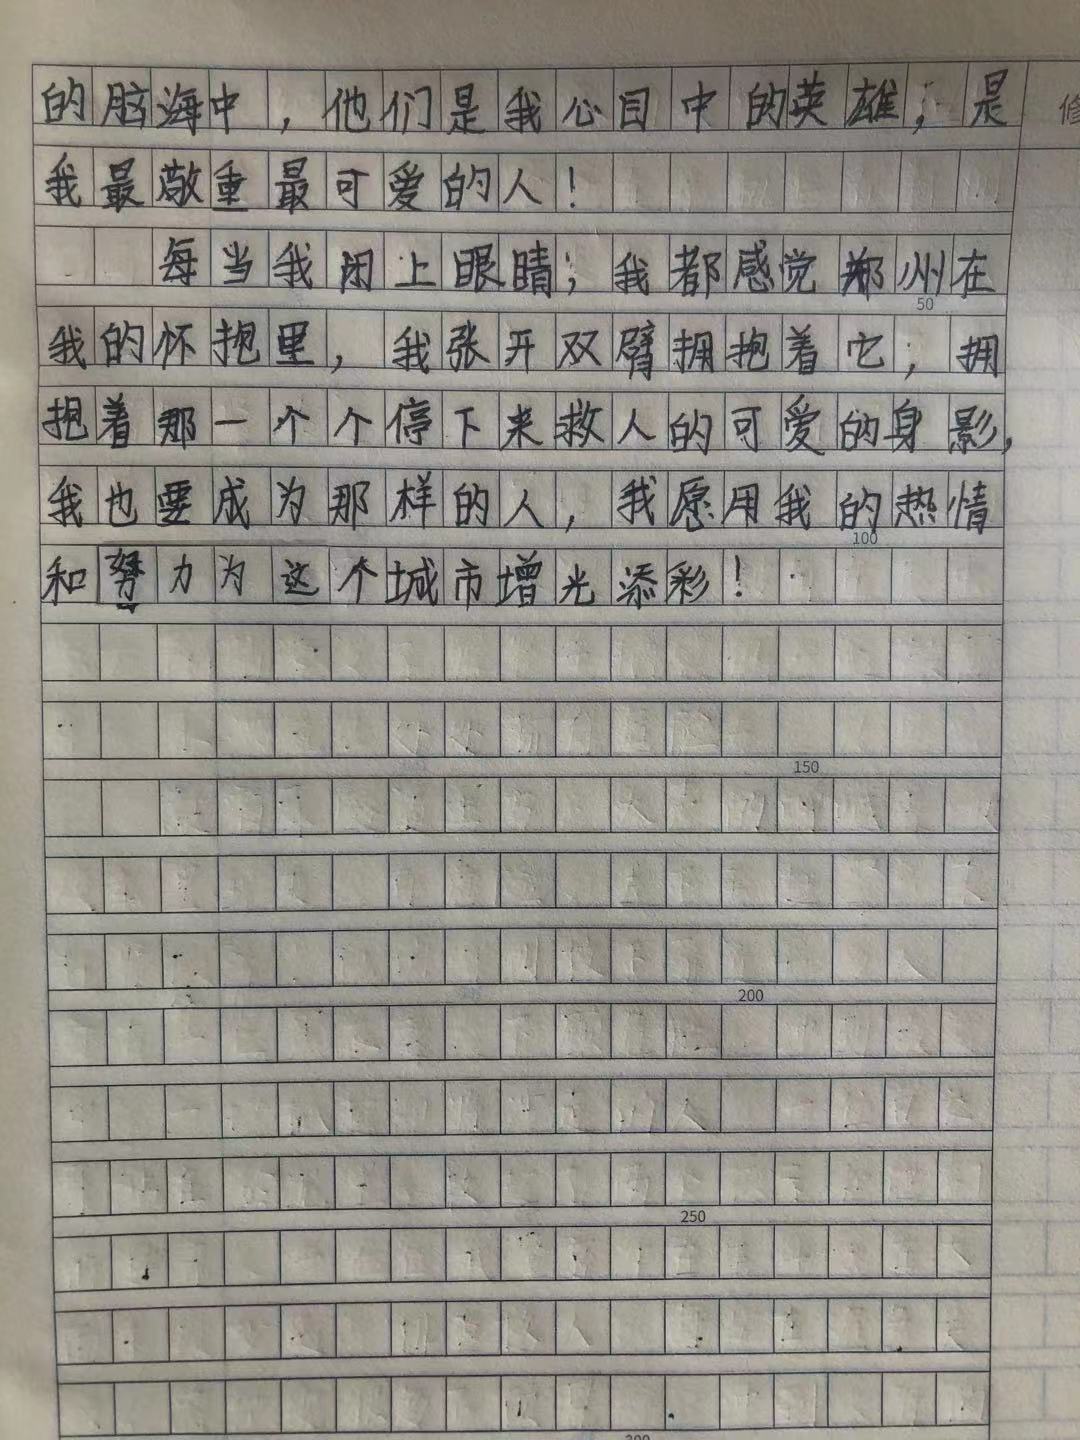 的脑海中，他们是我心目中的英雄，是
修
我最敬重最可爱的人！
每当我闭上眼睛，我都感觉郑州在
50
我的怀抱里，我张开双臂拥抱着它，拥
抱着那一个个停下来救人的可爱的身影，
我也要成为那样的人，我愿用我的热情
100
和努力为这个城市增光添彩！
150
200
250
300